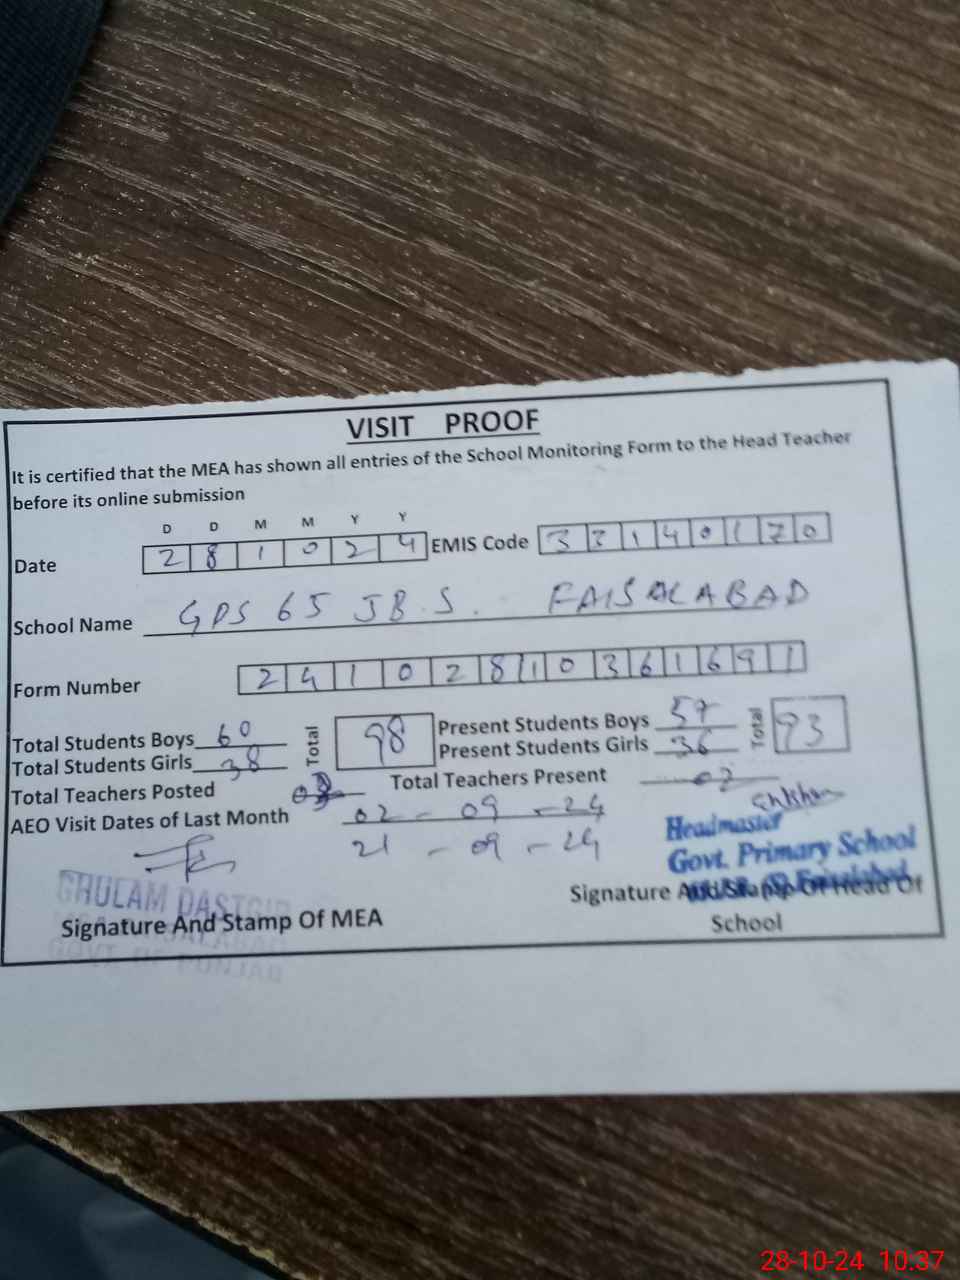 VISIT PROOF
It is certified that the MEA has shown all entries of the School Monitoring Form to the Head Teacher
before its online submission
D D M M Y Y
Date 2 8 1 0 2 4 EMIS Code 3 3 1 4 0 1 7 0
School Name GPS 65 JB. S. FAISALABAD
Form Number 2 4 1 0 2 8 1 0 3 6 1 6 9 1
Total Students Boys 60 Total 98 Present Students Boys 57 Total 93
Total Students Girls 38 Present Students Girls 36
Total Teachers Posted Total Teachers Present
AEO Visit Dates of Last Month 02 - 09 - 24
21 - 09 - 24
Headmaster
Govt. Primary School
GHULAM DASTGIR
Signature And Stamp Of MEA
Signature And Stamp Of Head Of
School
GOVT OF PUNJAB
28-10-24 10:37